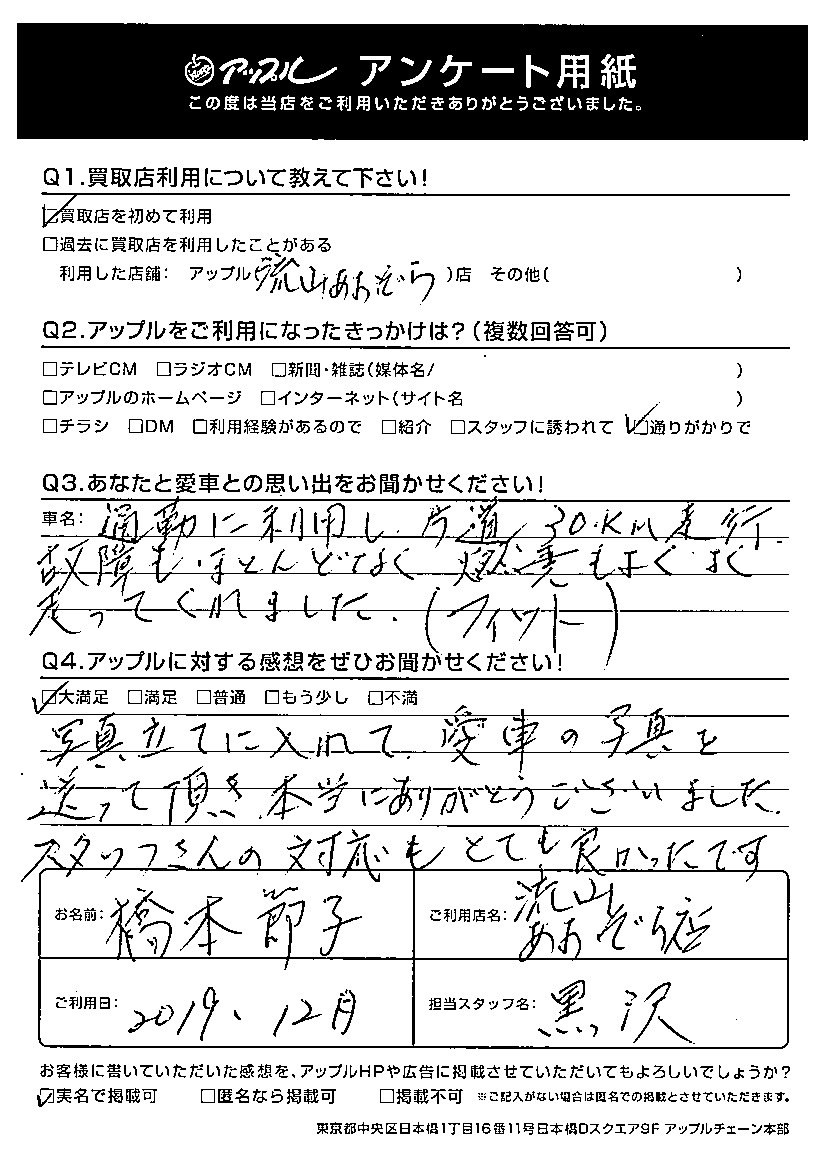 アップル アンケート用紙
この度は当店をご利用いただきありがとうございました。
Q1.買取店利用について教えて下さい!
☑買取店を初めて利用
□過去に買取店を利用したことがある
利用した店舗: アップル(流山あおぞら)店 その他( )
Q2.アップルをご利用になったきっかけは?(複数回答可)
□テレビCM □ラジオCM □新聞・雑誌(媒体名/ )
□アップルのホームページ □インターネット(サイト名 )
□チラシ □DM □利用経験があるので □紹介 □スタッフに誘われて ☑通りがかりで
Q3.あなたと愛車との思い出をお聞かせください!
車名: 通勤に利用し、片道30.KM走行、
故障もほとんどなく 燃費もよくよく
走ってくれました。(フィット)
Q4.アップルに対する感想をぜひお聞かせください!
☑大満足 □満足 □普通 □もう少し □不満
写真立てに入れて、愛車の写真を
送って頂き、本当にありがとうございました。
スタッフさんの対応もとても良かったです
お名前: 橋本節子
ご利用店名: 流山あおぞら店
ご利用日: 2019、12月
担当スタッフ名: 黒沢
お客様に書いていただいた感想を、アップルHPや広告に掲載させていただいてもよろしいでしょうか?
☑実名で掲載可 □匿名なら掲載可 □掲載不可 ※ご記入がない場合は匿名での掲載とさせていただきます。
東京都中央区日本橋1丁目16番11号日本橋Dスクエア9F アップルチェーン本部